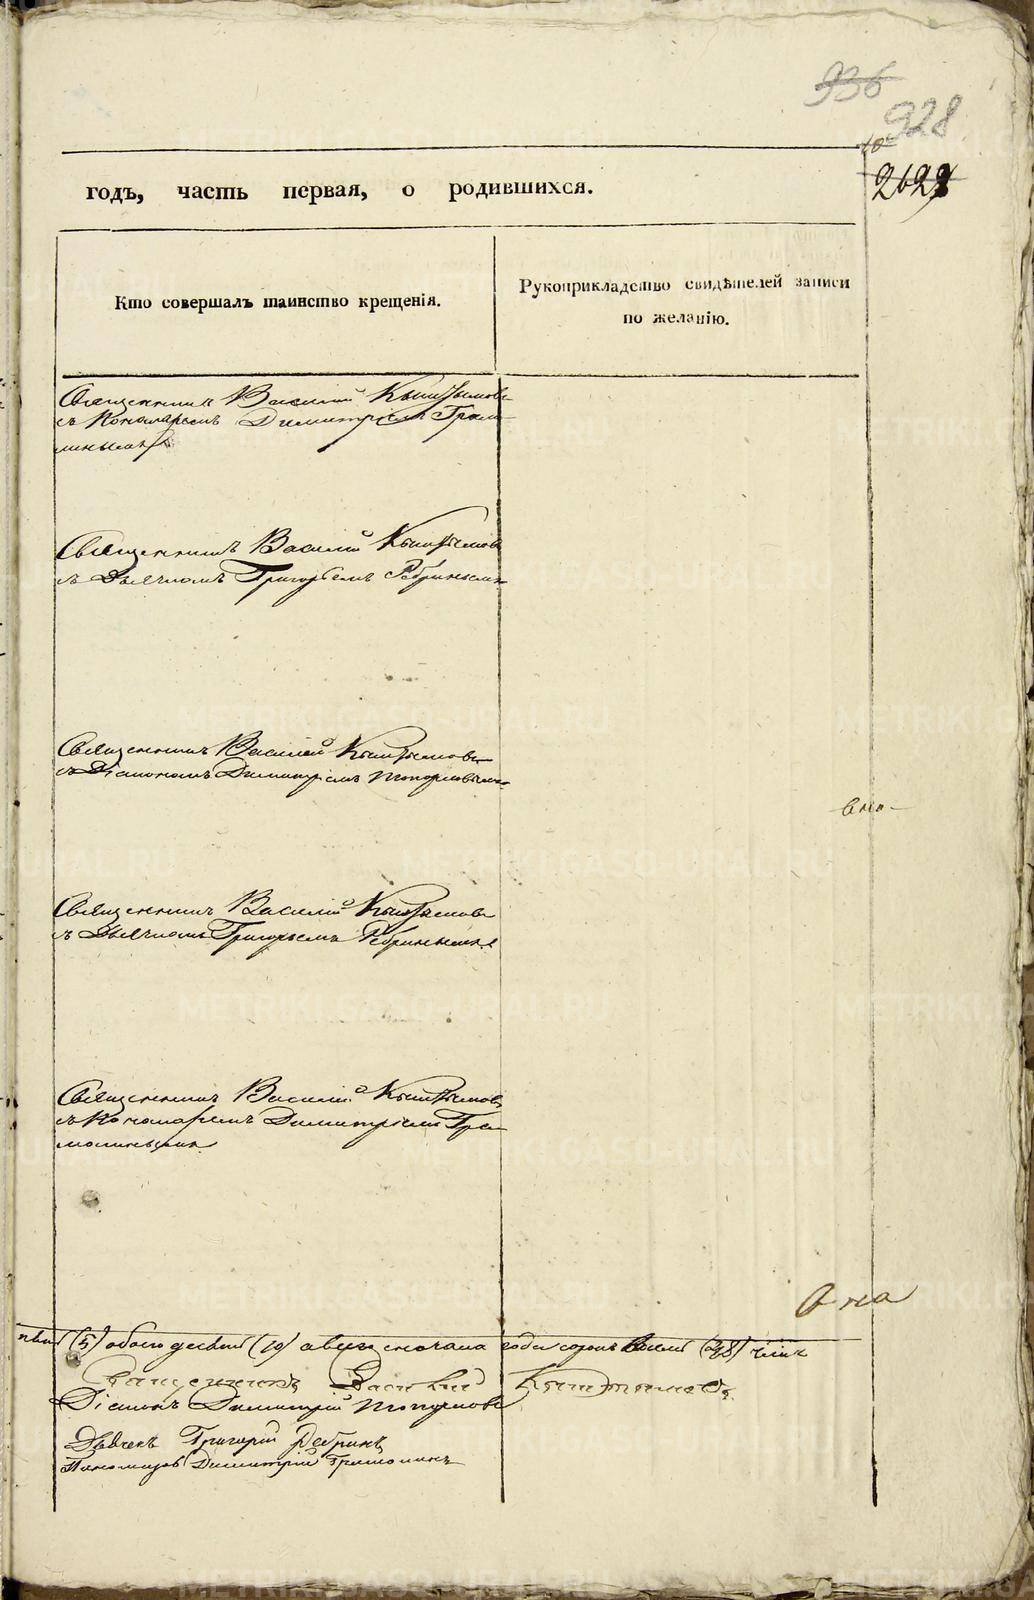 936
928
годъ, часть первая, о родившихся.
Кто совершалъ таинство крещенія.
Рукоприкладство свидѣтелей записи
по желанію.
Священникъ Василій Кыштымовъ
съ Пономаремъ Димитріемъ Грамо
линымъ
Священникъ Василій Кыштымовъ
съ Дьячкомъ Григорьемъ Ребринымъ
Священникъ Василій Кыштымовъ
съ Діакономъ Димитріемъ Топорковымъ
Священникъ Василій Кыштымовъ
съ Дьячкомъ Григорьемъ Ребринымъ
Священникъ Василій Кыштымовъ
съ Пономаремъ Димитріемъ Гра
молинымъ
(5) обоего (19) а сначала года сорокъ (48)
Священникъ Василій Кыштымовъ
Діаконъ Димитрій Топорковъ
Дьячекъ Григорій Ребринъ
Пономарь Димитрій Грамолинъ
METRIKI.GASO-URAL.RU